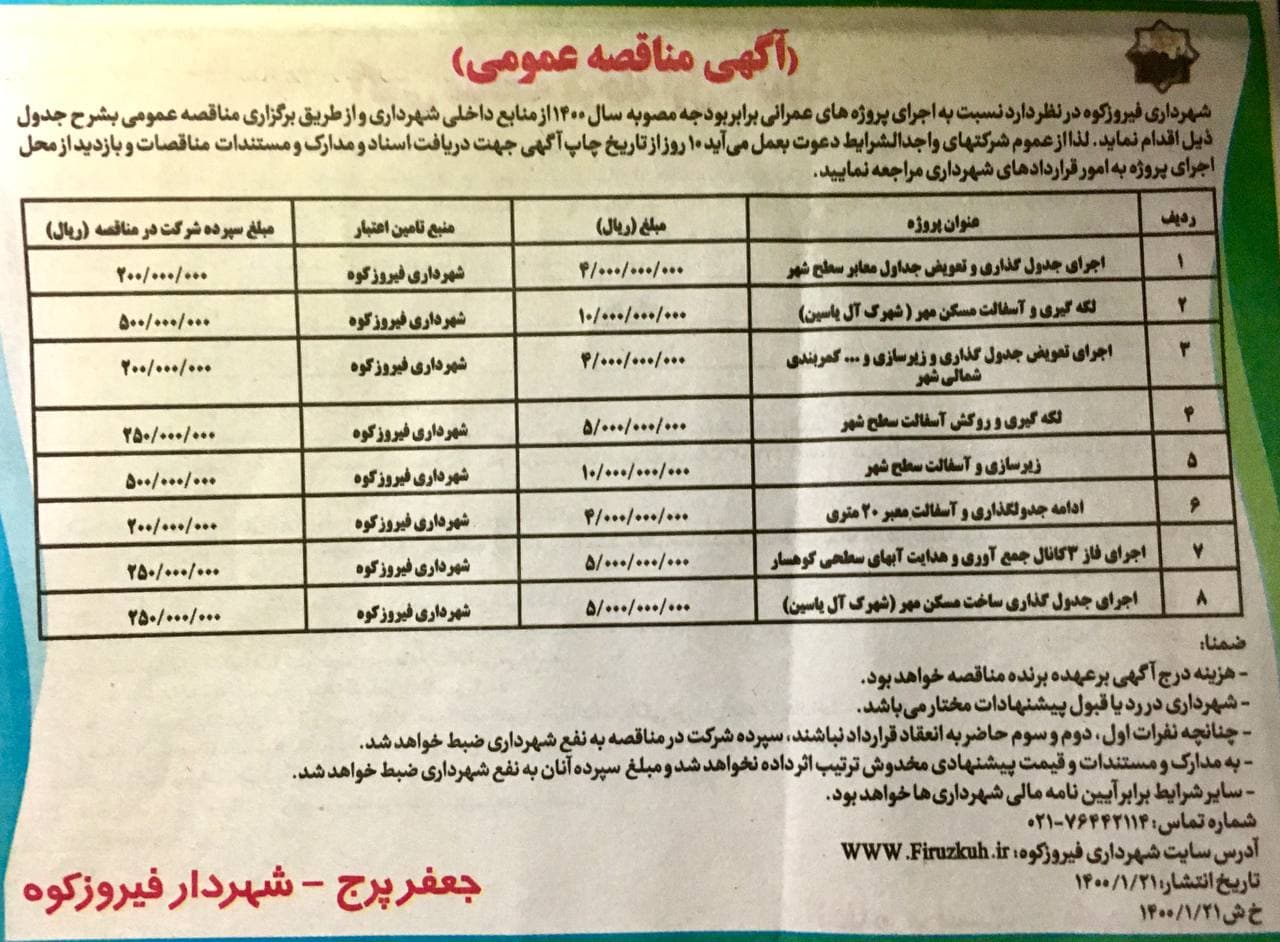 (آگهی مناقصه عمومی)
شهرداری فیروزکوه در نظر دارد نسبت به اجرای پروژه های عمرانی برابر بودجه مصوبه سال ۱۴۰۰ از منابع داخلی شهرداری و از طریق برگزاری مناقصه عمومی بشرح جدول
ذیل اقدام نماید. لذا از عموم شرکتهای واجدالشرایط دعوت بعمل می‌آید ۱۰ روز از تاریخ چاپ آگهی جهت دریافت اسناد و مدارک و مستندات مناقصات و بازدید از محل
اجرای پروژه به امور قراردادهای شهرداری مراجعه نمایید.
ردیف عنوان پروژه مبلغ (ریال) منبع تامین اعتبار مبلغ سپرده شرکت در مناقصه (ریال)
۱ اجرای جدول گذاری و تعویض جداول معابر سطح شهر ۴/۰۰۰/۰۰۰/۰۰۰ شهرداری فیروزکوه ۲۰۰/۰۰۰/۰۰۰
۲ لکه گیری و آسفالت مسکن مهر (شهرک آل یاسین) ۱۰/۰۰۰/۰۰۰/۰۰۰ شهرداری فیروزکوه ۵۰۰/۰۰۰/۰۰۰
۳ اجرای تعویض جدول گذاری و زیرسازی و ... کمربندی
شمالی شهر ۴/۰۰۰/۰۰۰/۰۰۰ شهرداری فیروزکوه ۲۰۰/۰۰۰/۰۰۰
۴ لکه گیری و روکش آسفالت سطح شهر ۵/۰۰۰/۰۰۰/۰۰۰ شهرداری فیروزکوه ۲۵۰/۰۰۰/۰۰۰
۵ زیرسازی و آسفالت سطح شهر ۱۰/۰۰۰/۰۰۰/۰۰۰ شهرداری فیروزکوه ۵۰۰/۰۰۰/۰۰۰
۶ ادامه جدولگذاری و آسفالت معبر ۲۰ متری ۴/۰۰۰/۰۰۰/۰۰۰ شهرداری فیروزکوه ۲۰۰/۰۰۰/۰۰۰
۷ اجرای فاز ۳ کانال جمع آوری و هدایت آبهای سطحی کوهسار ۵/۰۰۰/۰۰۰/۰۰۰ شهرداری فیروزکوه ۲۵۰/۰۰۰/۰۰۰
۸ اجرای جدول گذاری ساخت مسکن مهر (شهرک آل یاسین) ۵/۰۰۰/۰۰۰/۰۰۰ شهرداری فیروزکوه ۲۵۰/۰۰۰/۰۰۰
ضمنا:
- هزینه درج آگهی بر عهده برنده مناقصه خواهد بود.
- شهرداری در رد یا قبول پیشنهادات مختار می‌باشد.
- چنانچه نفرات اول، دوم و سوم حاضر به انعقاد قرارداد نباشند، سپرده شرکت در مناقصه به نفع شهرداری ضبط خواهد شد.
- به مدارک و مستندات و قیمت پیشنهادی مخدوش ترتیب اثر داده نخواهد شد و مبلغ سپرده آنان به نفع شهرداری ضبط خواهد شد.
- سایر شرایط برابر آیین نامه مالی شهرداری‌ها خواهد بود.
شماره تماس: ۷۶۴۴۲۱۱۴-۰۲۱
آدرس سایت شهرداری فیروزکوه: WWW.Firuzkuh.ir
تاریخ انتشار: ۱۴۰۰/۱/۲۱
خ ش ۱۴۰۰/۱/۲۱
جعفر پرچ - شهردار فیروزکوه